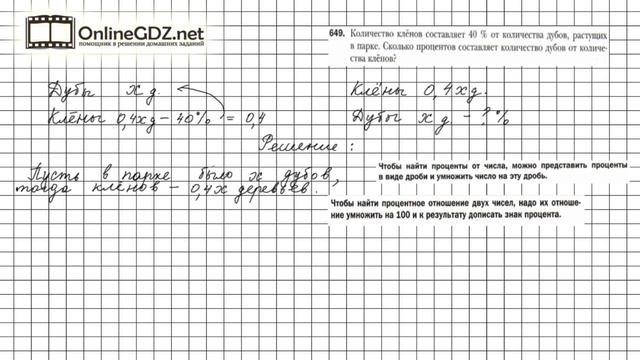 OnlineGDZ.net
помощник в решении домашних заданий
649. Количество клёнов составляет 40 % от количества дубов, растущих
в парке. Сколько процентов составляет количество дубов от количе-
ства клёнов?
Дубы х д.
Клёны 0,4х д – 40% = 0,4
Клёны 0,4х д.
Дубы х д. – ? %
Решение :
Пусть в парке было х дубов,
тогда клёнов – 0,4х деревьев.
Чтобы найти проценты от числа, можно представить проценты
в виде дроби и умножить число на эту дробь.
Чтобы найти процентное отношение двух чисел, надо их отноше-
ние умножить на 100 и к результату дописать знак процента.